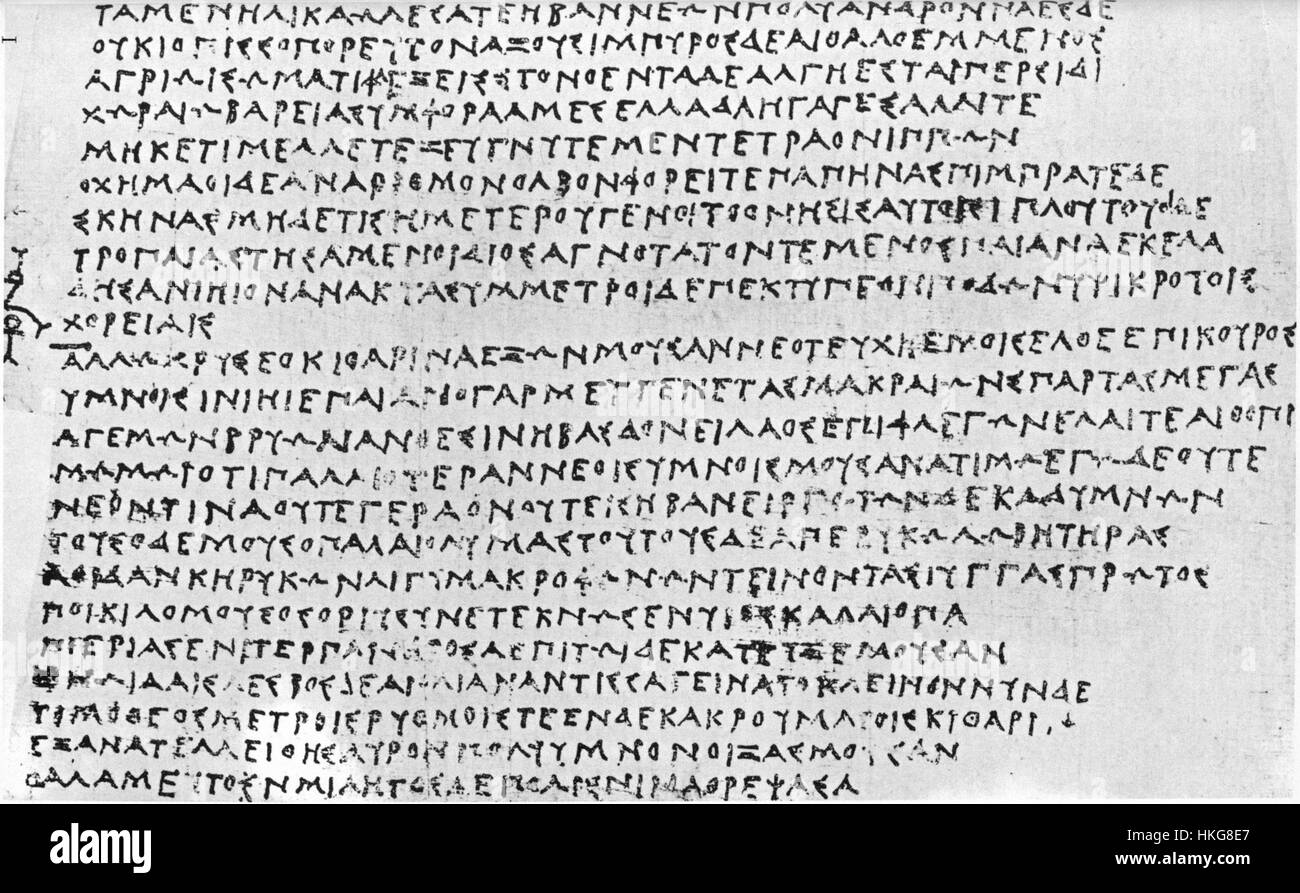 ΤΑΜΕΝΗΛΙΚΑΛΛΕΣΑΤΕΗΒΑΝΝΕΩΝΠΟΛΥΑΝΔΡΟΝΝΑΕΣΔΕ
ΟΥΚΙΟΠΙΣΣΟΠΟΡΕΥΤΟΝΑΞΟΥΣΙΜΠΥΡΟΣΔΕΑΙΘΑΛΟΕΜΜΕΝΟΣ
ΑΓΡΙΩΙΣΩΜΑΤΙΦΛΕΞΕΙΣΤΟΝΟΕΝΤΑΔΕΑΛΓΗΕΣΤΑΙΠΕΡΣΙΔΙ
ΧΩΡΑΙΩΒΑΡΕΙΑΣΥΜΦΟΡΑΑΜΕΣΕΛΛΑΔΑΗΓΑΓΕΣΑΛΛΙΤΕ
ΜΗΚΕΤΙΜΕΛΛΕΤΕΖΕΥΓΝΥΤΕΜΕΝΤΕΤΡΑΟΝΙΠΠΩΝ
ΟΧΗΜΑΟΙΔΕΑΝΑΡΙΘΜΟΝΟΛΒΟΝΦΟΡΕΙΤΕΠΑΠΗΝΑΣΠΙΜΠΡΑΤΕΔΕ
ΣΚΗΝΑΣΜΗΔΕΤΙΣΗΜΕΤΕΡΟΥΓΕΝΟΙΤΟΟΝΗΣΙΣΑΥΤΟΙΣΙΠΛΟΥΤΟΥΟΙΔΕ
ΤΡΟΠΑΙΑΣΤΗΣΑΜΕΝΟΙΔΙΟΣΑΓΝΟΤΑΤΟΝΤΕΜΕΝΟΣΠΑΙΑΝΑΕΚΕΛΑ
ΔΗΣΑΝΙΗΙΟΝΑΝΑΚΤΑΣΥΜΜΕΤΡΟΙΔΕΠΕΚΤΥΠΕΟΝΠΟΔΩΝΥΨΙΚΡΟΤΟΙΣ
ΧΟΡΕΙΑΙΣ
ΑΛΛΩΧΡΥΣΕΟΚΙΘΑΡΙΝΑΕΞΩΝΜΟΥΣΑΝΝΕΟΤΕΥΧΗΕΜΟΙΣΕΛΘΕΕΠΙΚΟΥΡΟΣ
ΥΜΝΟΙΣΙΝΙΗΙΕΠΑΙΑΝΟΓΑΡΜΕΥΓΕΝΕΤΑΣΜΑΚΡΑΙΩΝΣΠΑΡΤΑΣΜΕΓΑΣ
ΑΓΕΜΩΝΒΡΥΩΝΑΝΘΕΣΙΝΗΒΑΣΔΟΝΕΙΛΑΟΣΕΠΙΦΛΕΓΩΝΕΛΑΙΤΕΑΙΘΟΠΙ
ΜΩΜΩΙΟΤΙΠΑΛΑΙΟΤΕΡΑΝΝΕΟΙΣΥΜΝΟΙΣΜΟΥΣΑΝΑΤΙΜΩΕΓΩΔΕΟΥΤΕ
ΝΕΟΝΤΙΝΑΟΥΤΕΓΕΡΑΟΝΟΥΤΕΙΣΗΒΑΝΕΙΡΓΩΤΩΝΔΕΚΑΔΥΜΝΩΝ
ΤΟΥΣΔΕΜΟΥΣΟΠΑΛΑΙΟΛΥΜΑΣΤΟΥΤΟΥΣΔΑΠΕΡΥΚΩΛΩΒΗΤΗΡΑΣ
ΑΟΙΔΑΝΚΗΡΥΚΩΝΛΙΓΥΜΑΚΡΟΦΩΝΩΝΤΕΙΝΟΝΤΑΣΙΥΓΓΑΣΠΡΩΤΟΣ
ΠΟΙΚΙΛΟΜΟΥΣΟΣΟΡΙΥΣΥΝΕΤΕΚΝΩΣΕΝΥΙΟΣΚΑΛΛΙΟΠΑ
ΠΙΕΡΙΑΣΕΝΙΤΕΡΠΑΝΔΡΟΣΔΕΠΙΤΩΙΔΕΚΑΤΕΥΞΕΜΟΥΣΑΝ
ΕΝΩΙΔΑΙΣΛΕΣΒΟΣΔΕΑΙΟΛΙΑΝΑΝΤΙΣΣΑΓΕΙΝΑΤΟΚΛΕΙΝΟΝΝΥΝΔΕ
ΤΙΜΟΘΕΟΣΜΕΤΡΟΙΣΡΥΘΜΟΙΣΤΕΕΝΔΕΚΑΚΡΟΥΜΑΤΟΙΣΚΙΘΑΡΙΝ
ΕΞΑΝΑΤΕΛΛΕΙΘΗΣΑΥΡΟΝΠΟΛΥΥΜΝΟΝΟΙΞΑΣΜΟΥΣΑΝ
ΘΑΛΑΜΕΥΤΟΝΜΙΛΗΤΟΣΔΕΠΟΛΙΣΝΙΝΑΘΡΕΨΑΣΑ
alamy
Image ID: HKG8E7
www.alamy.com